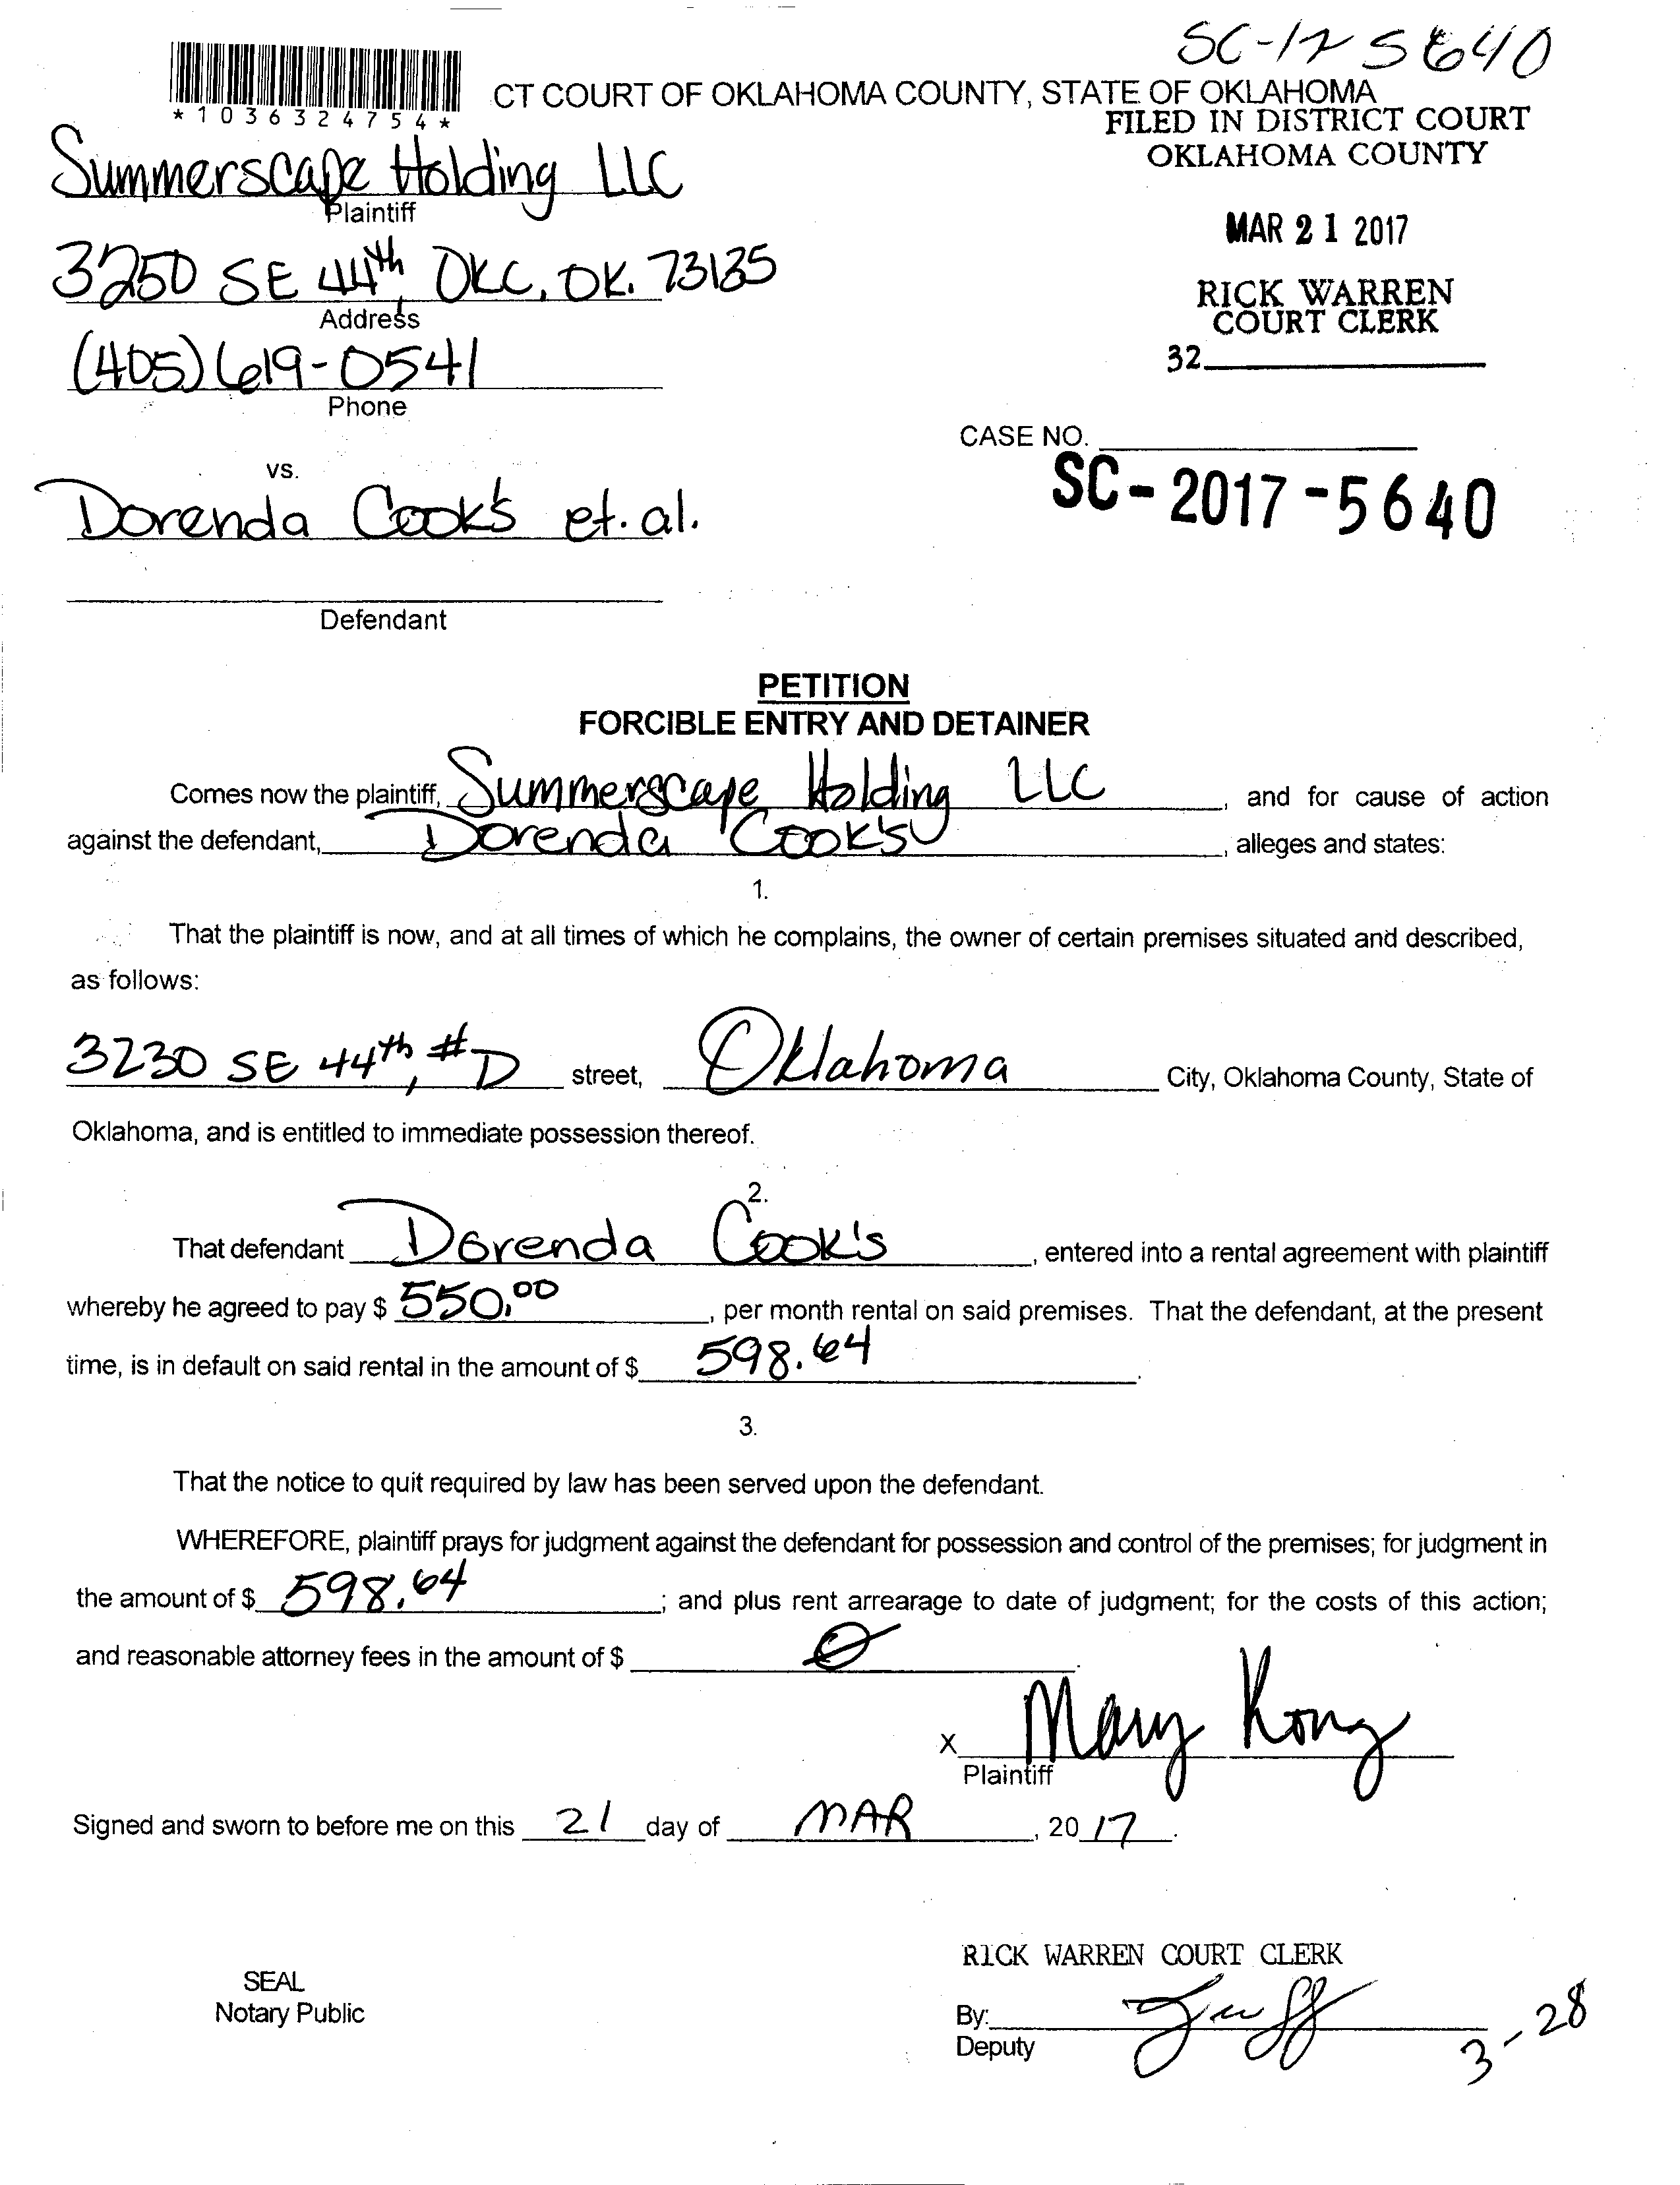 SC-17 5640
*1036324754*
CT COURT OF OKLAHOMA COUNTY, STATE OF OKLAHOMA
FILED IN DISTRICT COURT
OKLAHOMA COUNTY
Summerscape Holding LLC
Plaintiff
MAR 21 2017
3250 SE 44th, OKC, OK. 73135
Address
RICK WARREN
COURT CLERK
32
(405) 619-0541
Phone
CASE NO.
SC-2017-5640
vs.
Dorenda Cook's et. al.
Defendant
PETITION
FORCIBLE ENTRY AND DETAINER
Comes now the plaintiff, Summerscape Holding LLC, and for cause of action
against the defendant, Dorenda Cook's, alleges and states:
1.
That the plaintiff is now, and at all times of which he complains, the owner of certain premises situated and described,
as follows:
3230 SE 44th, #D street, Oklahoma City, Oklahoma County, State of
Oklahoma, and is entitled to immediate possession thereof.
2.
That defendant Dorenda Cook's, entered into a rental agreement with plaintiff
whereby he agreed to pay $ 550.00, per month rental on said premises. That the defendant, at the present
time, is in default on said rental in the amount of $ 598.64.
3.
That the notice to quit required by law has been served upon the defendant.
WHEREFORE, plaintiff prays for judgment against the defendant for possession and control of the premises; for judgment in
the amount of $ 598.64; and plus rent arrearage to date of judgment; for the costs of this action;
and reasonable attorney fees in the amount of $ 0.
X Mary Kong
Plaintiff
Signed and sworn to before me on this 21 day of MAR, 2017.
RICK WARREN COURT CLERK
SEAL
Notary Public
By:
Deputy
3-28